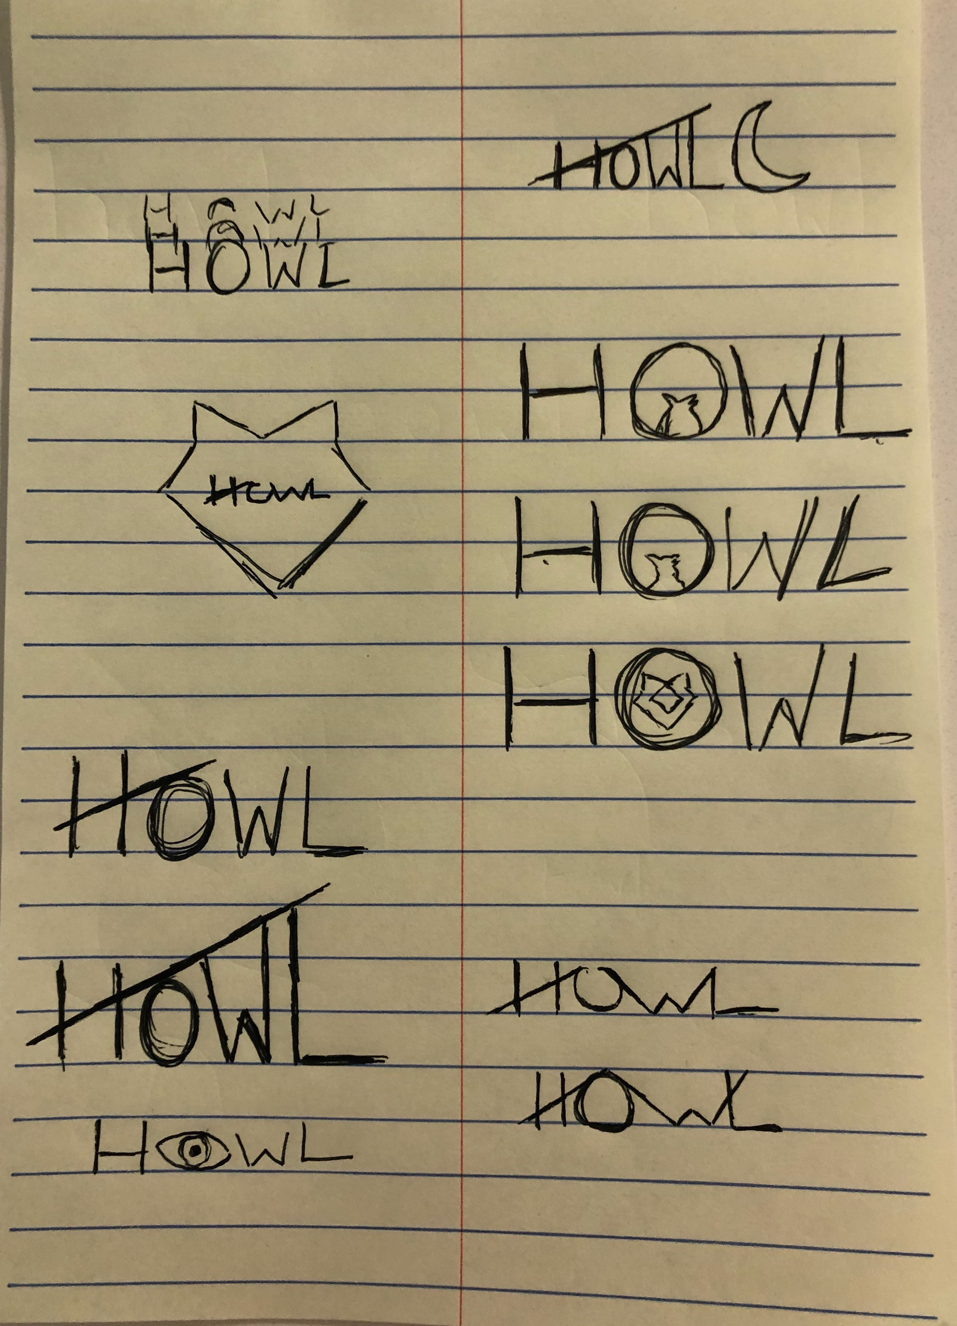 HOWL
HOWL
HOWL
HOWL
HOWL
HOWL
HOWL
HOWL
HOWL
HOWL
HOWL
HOWL
HOWL
HOWL